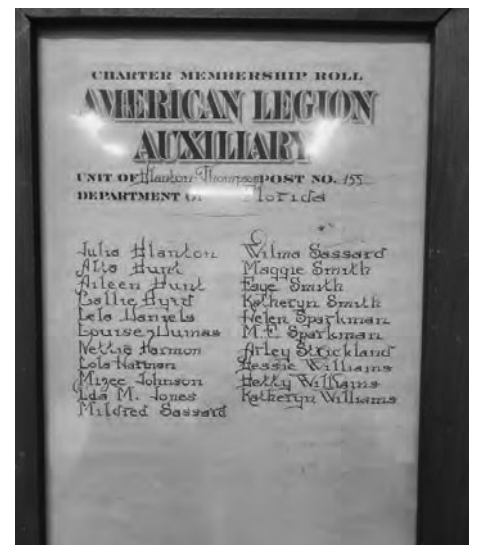 CHARTER MEMBERSHIP ROLL
AMERICAN LEGION
AUXILIARY
UNIT OF Hanton-Thompson POST NO. 155
DEPARTMENT OF Florida
Julia Hanton
Alta Hunt
Aileen Hunt
Callie Byrd
Lela Daniels
Louise Dumas
Nettie Harmon
Lola Harmon
Mizee Johnson
Ida M. Jones
Mildred Sassard
Wilma Sassard
Maggie Smith
Faye Smith
Katheryn Smith
Helen Sparkman
M.E. Sparkman
Arley Strickland
Bessie Williams
Hetty Williams
Katheryn Williams